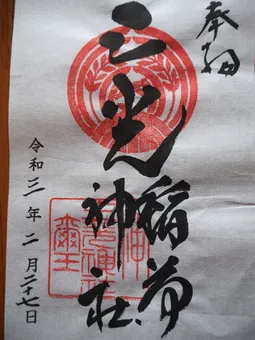 奉拝
三光
稲荷
神社
令和三年二月二十七日